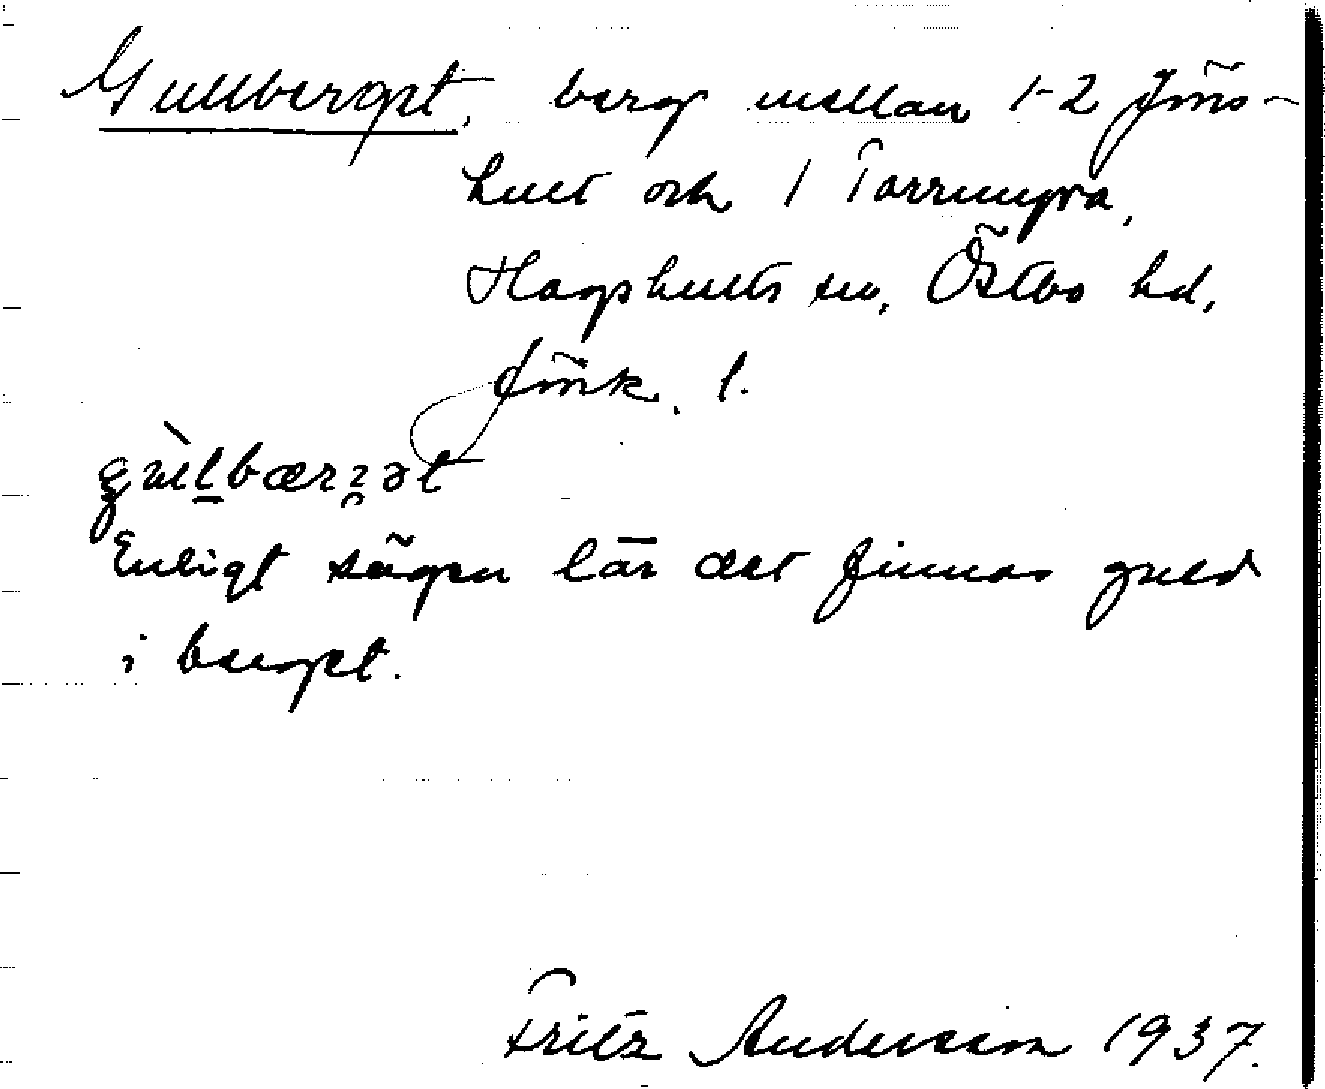 Gullberget, berg mellan 1-2 Jöns-
hult och 1 Torrmyra,
Hagshults sn, Östbo hd,
Jönk. l.
Enligt sägen lär det finnas guld
i berget.
Fritz Andersson 1937.